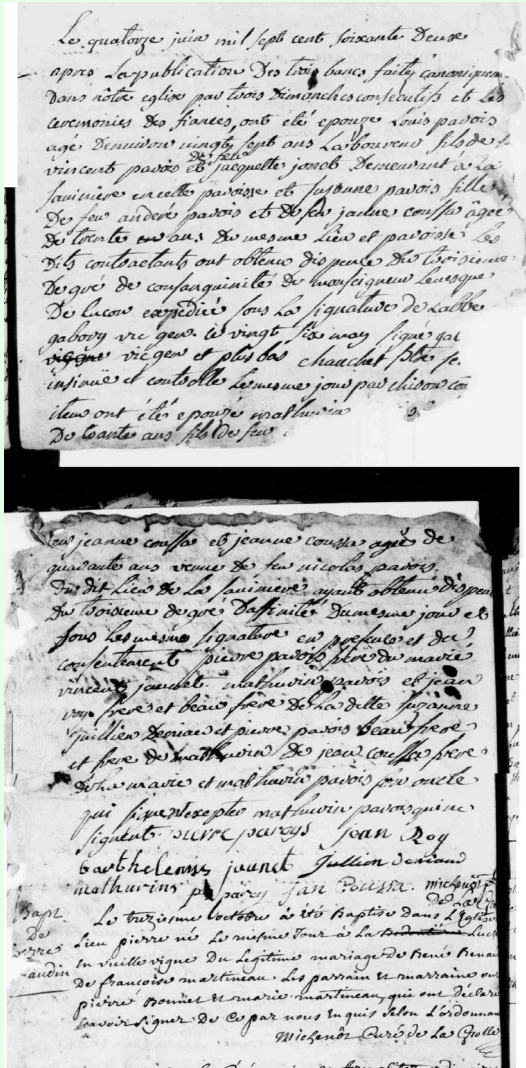 Le quatorze juin mil sept cent soixante Deuse
apres La publication Des trois bancs faitey canoniquem
Dans nôtre eglise par trois Dimanches consecutifs et Les
ceremonies des fiances, ont été epouze Louis pavois
agé Denviron vingty sept ans Laboureur fils de
vincent pavois et jacquette jonet Demeurant à La
saviniere en cette paroisse et suzanne pavois fille
De feu anderé pavois et de feu janne coussa âgée
de trente ans Du mesme Lieu et paroisse Les
Dits contractants ont obtenu dispence du troisieme
Degré de consanguinité de monseigneur Levesque
De Lucon expédiée sous La signature de Labbe
gabory vic gen. le vingt six may signé gal
vic gen et plus bas chauchet
insinué et controlle Le mesme jour par chison
ont etés epouzé mathurin
De trante ans fils de feu
jeanne coussa et jeanne coussa agée de
quarante ans veuve de feu nicolas pavois
Du dit Lieu de La saviniere ayant obtenu dispen
Du troisieme degré Daffinité Du mesme jour et
sous Les mesme signature en presence et du
consentement pierre pavois frere du marié
vincent jaunet mathurin pavois et jean
roy frere et beau frère de La ditte suzanne
jullien deniau et pierre pavois beau frere
et frere de mathurin de jean coussa frere
De La mariée et mathurin pavois son oncle
qui signent excepté mathurin pavois qui ne
signent. pierre paroys jean Roy
barthelemis jaunet Jullien Deniaud
mathurins paroy Jan Coussa. michenot
de La
Bapt
De
pierre
Le treziesme octobre à été Baptise dans L'Eglise
Lieu pierre né Le mesme Jour à La
en vieille vigne du Legitime mariage de René Renau
De francoise martineau. Les parrain et marraine on
pierre Bonnet et marie martineau, qui ont déclaré
scavoir signer De ce par nous Enquis selon L'ordonnan
Michenot Curé de La Grolle